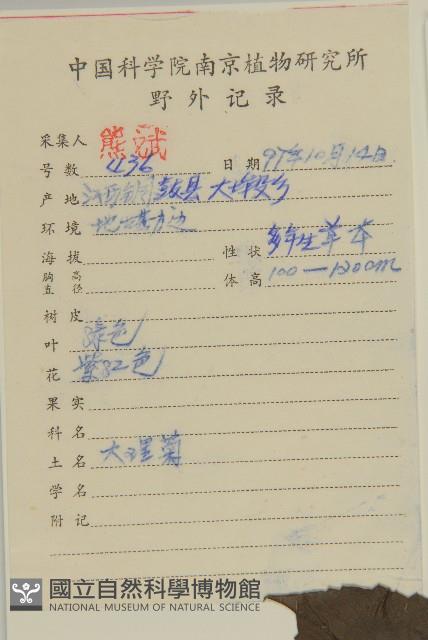 中国科学院南京植物研究所
野外记录
采集人 熊斌
号数 436 日期 97年10月14日
产地 江西铜鼓县大塅乡
环境
海拔 性状 多年生草本
胸高直径 体高 100—120cm
树皮
叶 绿色
花 紫红色
果实
科名
土名 大理菊
学名
附记
國立自然科學博物館
NATIONAL MUSEUM OF NATURAL SCIENCE